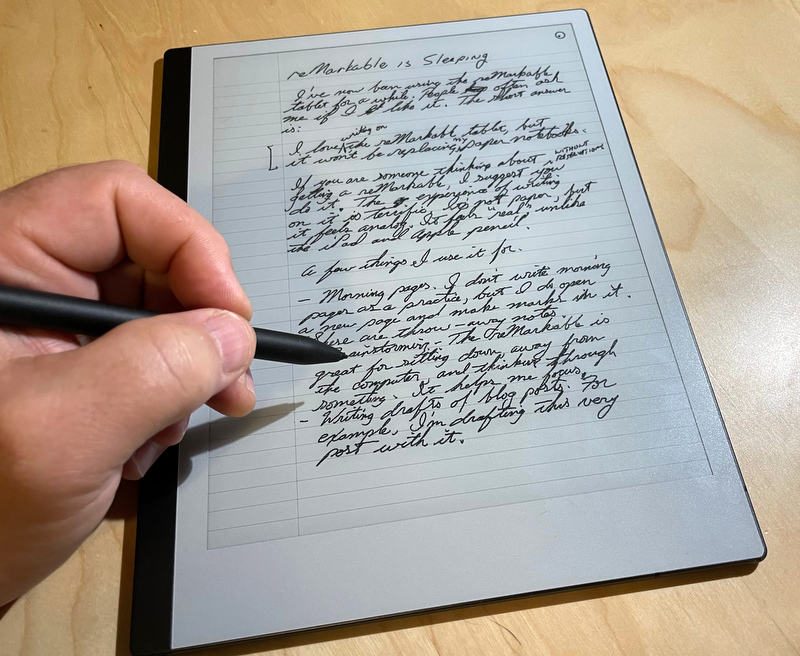 reMarkable is Sleeping
I've now been using the reMarkable
tablet for a while. People often ask
me if I like it. The short answer
is:
writing on
I love the reMarkable tablet, but
it won't be replacing my paper notebooks.
If you are someone thinking about
WITHOUT
getting a reMarkable, I suggest you
do it. The experience of writing
on it is terrific. not paper, but
it feels analog. It feels "real" unlike
the iPad and Apple pencil.
A few things I use it for.
- Morning pages. I don't write morning
pages as a practice, but I do open
a new page and make marks in it.
are throw-away notes
The reMarkable is
great for sitting down, away from
the computer and thinking through
something. It helps me focus.
- Writing drafts of blog posts. For
example, I'm drafting this very
post with it.